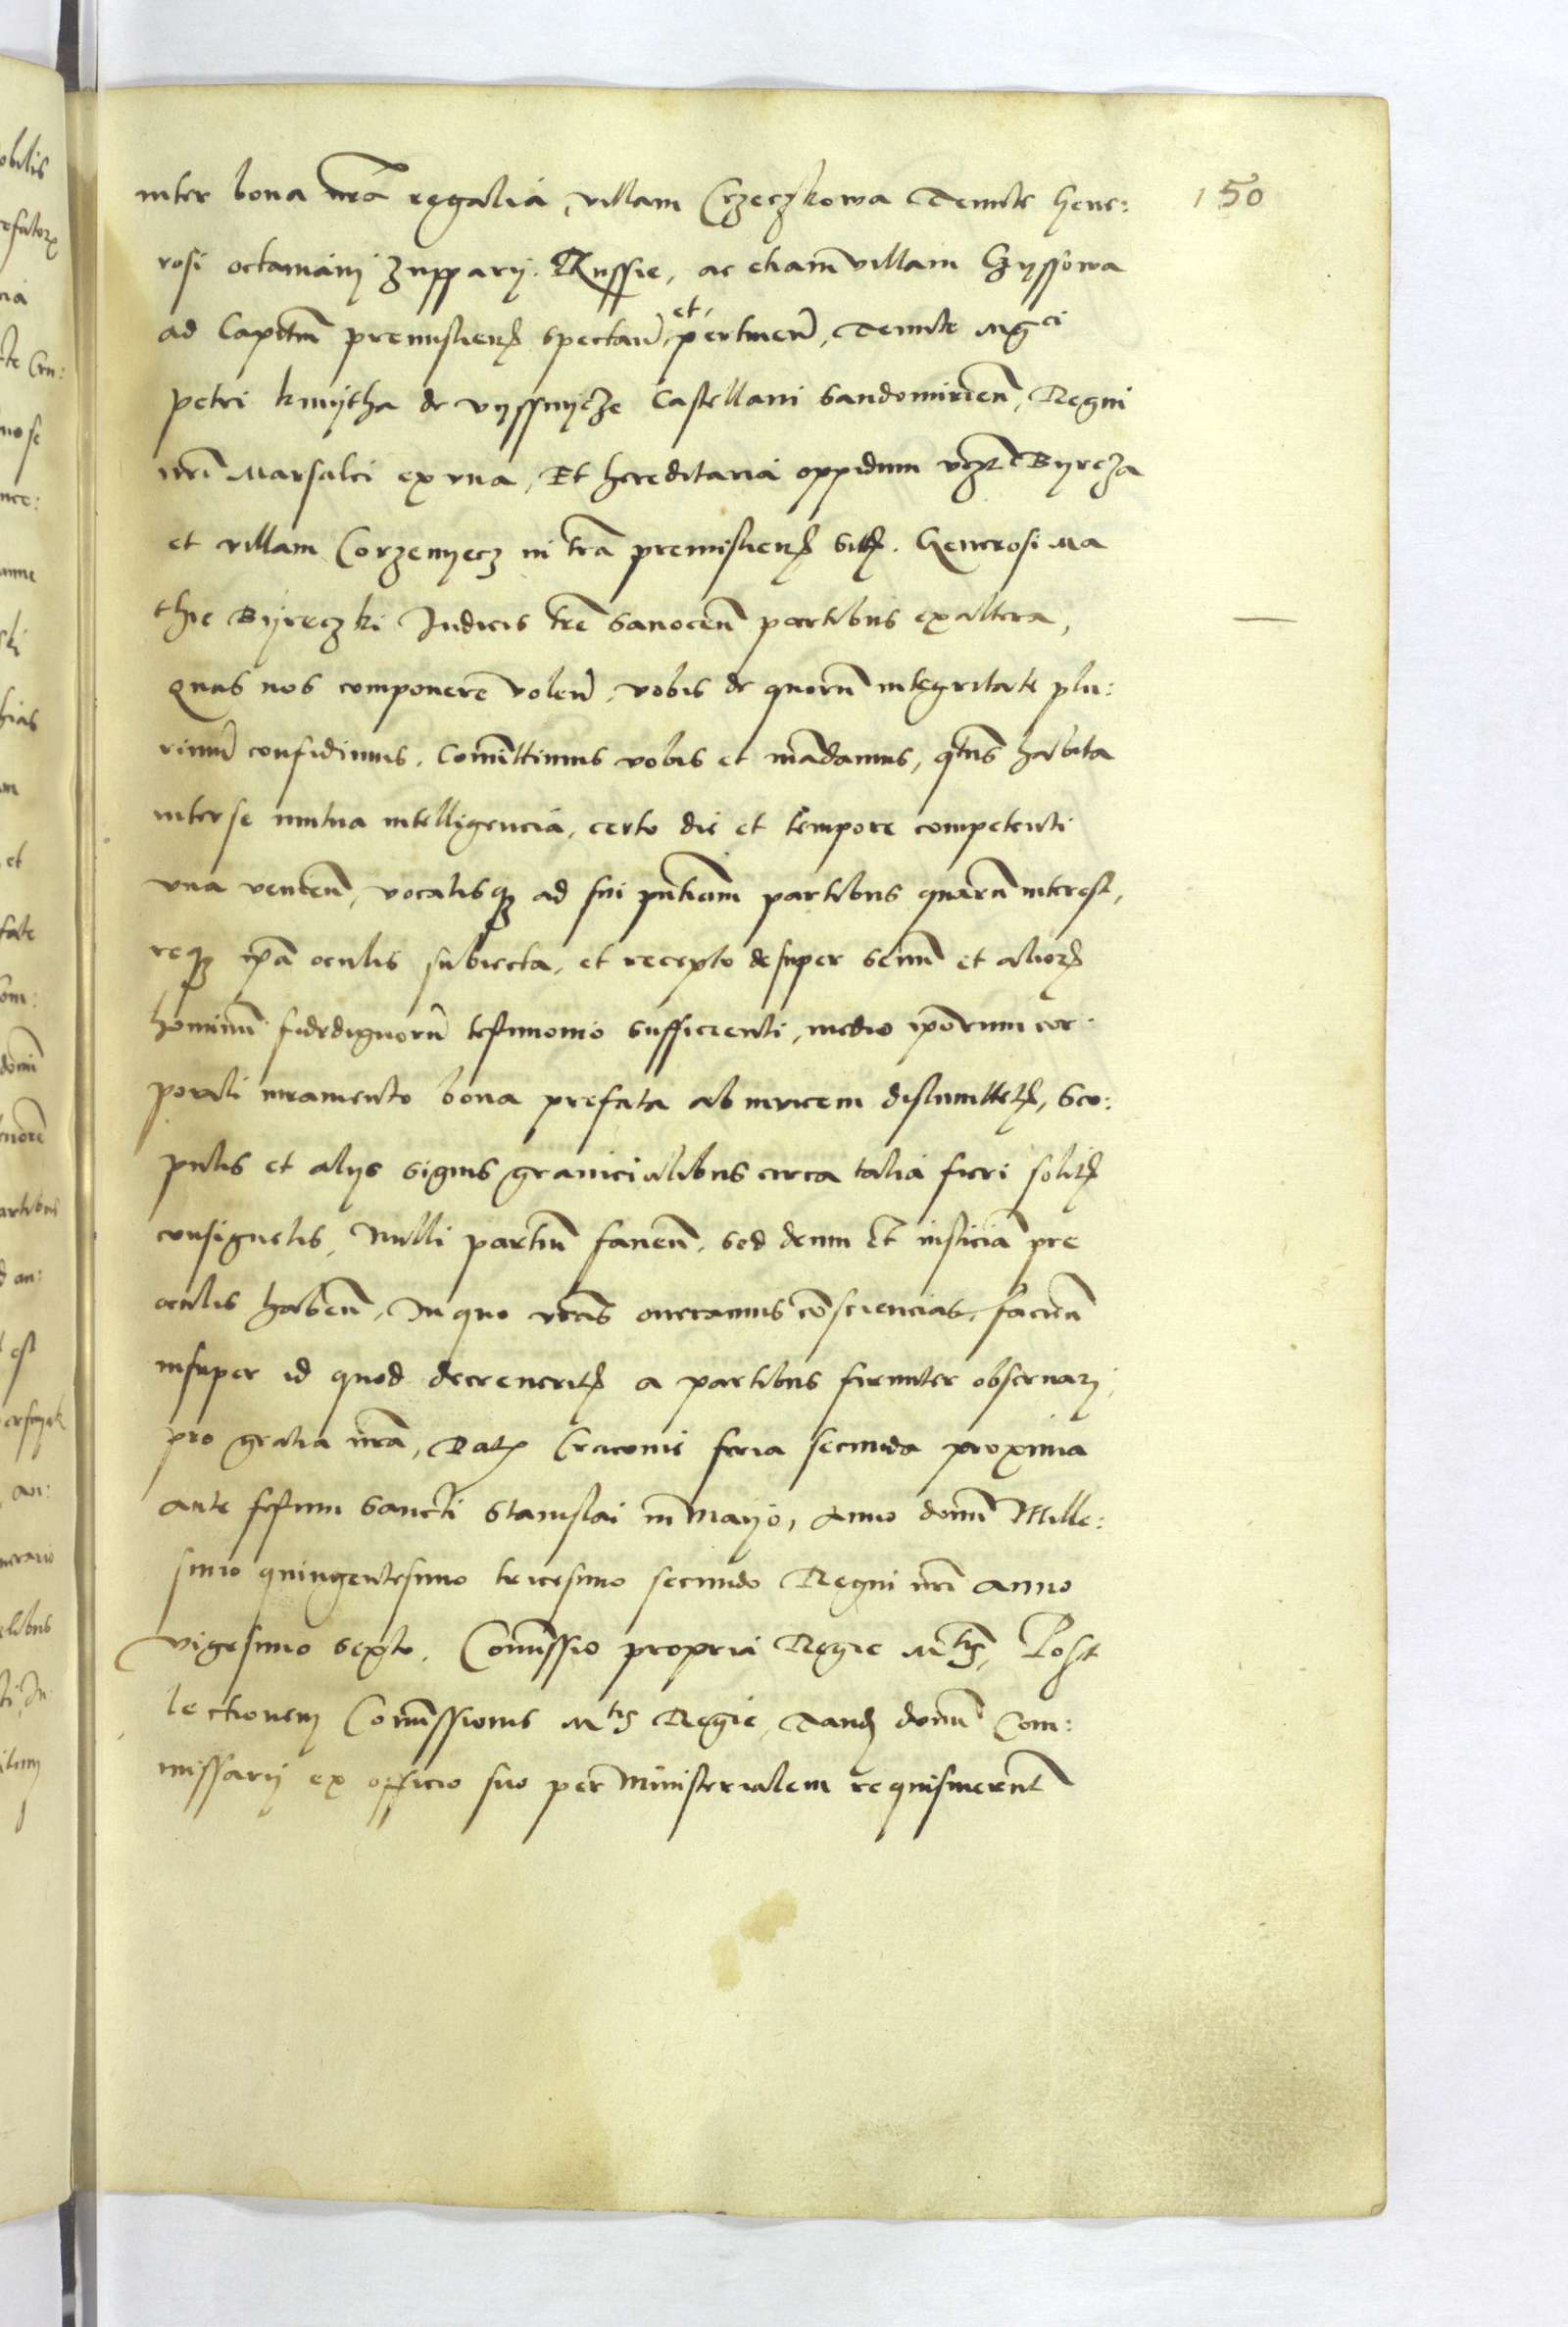 150
inter bona nrã regalia, villam Crzeczkowa Tenute Gene:
rosi octaviani Zupparij Russie, ac etiam villam Hyssowa
ad Capitm̃ premislienꝭ spectañ et pertineñ, Tenute Mgci
petri kmytha de vyssnycze Castellani Sandomirieñ, Regni
nrĩ Marsalci ex vna, Et hereditaria oppidum vcꝫt Byrcza
et villam Corzenyecz in trã premislienꝭ sitꝭ. Generosi Ma
thie Byreczki Iudicis trẽ Sanoceñ partibus ex altera,
Quas nos componere voleñ, vobis de quorũ integritate plu:
rimũ confidimus, Comittimus vobis et mãdamus, qtñs habita
inter se mutua intelligencia, certo die et tempore competenti
vna veneñ, vocatisqꝫ ad sui pñtiam partibus quarũ interest,
reqꝫ ip̃a oculis subiecta, et recepto desuper senũ et aliorꝭ
hominũ fidedignorũ testimonio sufficienti, medio ip̃orum cor:
porali iuramento bona prefata ab invicem distinittetꝭ, sco:
pulis et alijs signis granicialibus circa talia fieri solitꝭ
consignetis, Nulli partiũ faueñ, sed deum et iusticiã pre
oculis habeñ, In quo vrãs oneramus cõsciencias, facieñ
insuper id quod decreveritꝭ a partibus firmiter observari,
pro gratia nrã, Datꝭ Cracouie feria secunda proxima
ante festum Sancti Stanislai in Mayo, Anno domĩ Mille:
simo quingentesimo tricesimo secundo Regni nrĩ anno
vigesimo sexto, Comissio propria Regie Mtis, Post
lectionem Comissionis Mtis Regie, Tandꝭ domĩ Com:
missarij ex officio suo per Ministerialem requisiuerunt